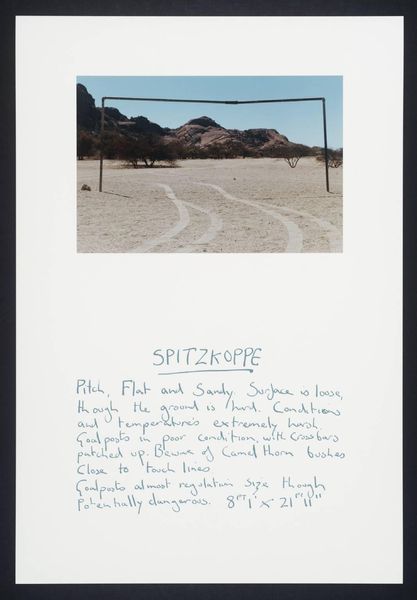 SPITZKOPPE
Pitch, Flat and Sandy. Surface is loose,
though the ground is hard. Conditions
and temperatures extremely harsh.
Goalposts in poor condition, with crossbars
patched up. Beware of Camel Thorn bushes
Close to touch lines
Goalposts almost regulation size though
Potentially dangerous. 8FT1" x 21FT11"